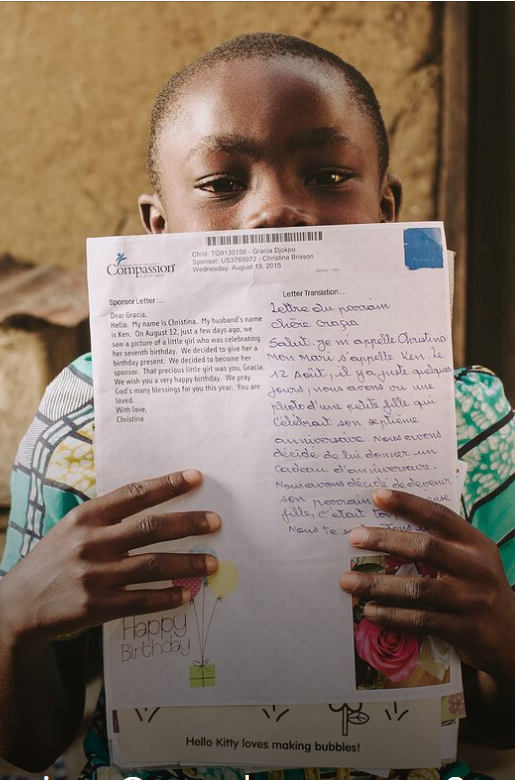 Compassion
Child: TG9130156 - Gracia Djokpo
Sponsor: US3769972 - Christina Brisson
Wednesday, August 19, 2015
Sponsor Letter...
Dear Gracia,
Hello. My name is Christina. My husband's name
is Ken. On August 12, just a few days ago, we
saw a picture of a little girl who was celebrating
her seventh birthday. We decided to give her a
birthday present. We decided to become her
sponsor. That precious little girl was you, Gracia.
We wish you a very happy birthday. We pray
God's many blessings for you this year. You are
loved.
With love,
Christina
Letter Translation...
Lettre du parrain
chère Gracia
Salut. je m'appelle Christina
Mon mari s'appelle Ken. Le
12 Août, il y a juste quelques
jours, nous avons vu une
photo d'une petite fille qui
célébrait son septième
anniversaire. Nous avons
décidé de lui donner un
cadeau d'anniversaire.
Nous avons décidé de devenir
son parrain
fille, c'était
Nous te
Happy
Birthday
Hello Kitty loves making bubbles!